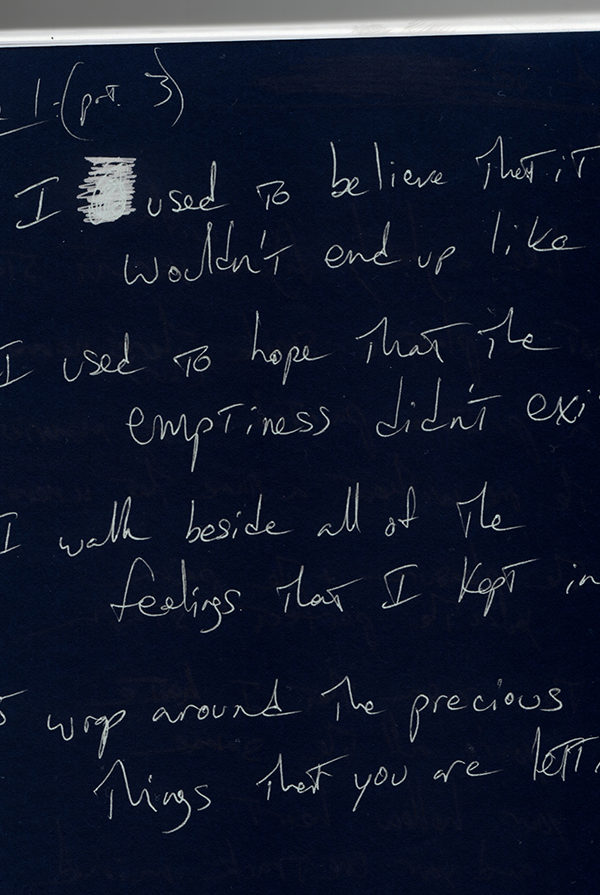 1. (prt. 3)
I used to believe that it
wouldn't end up like
I used to hope that the
emptiness didn't exi
I walk beside all of the
feelings that I kept in
wrap around the precious
things that you are